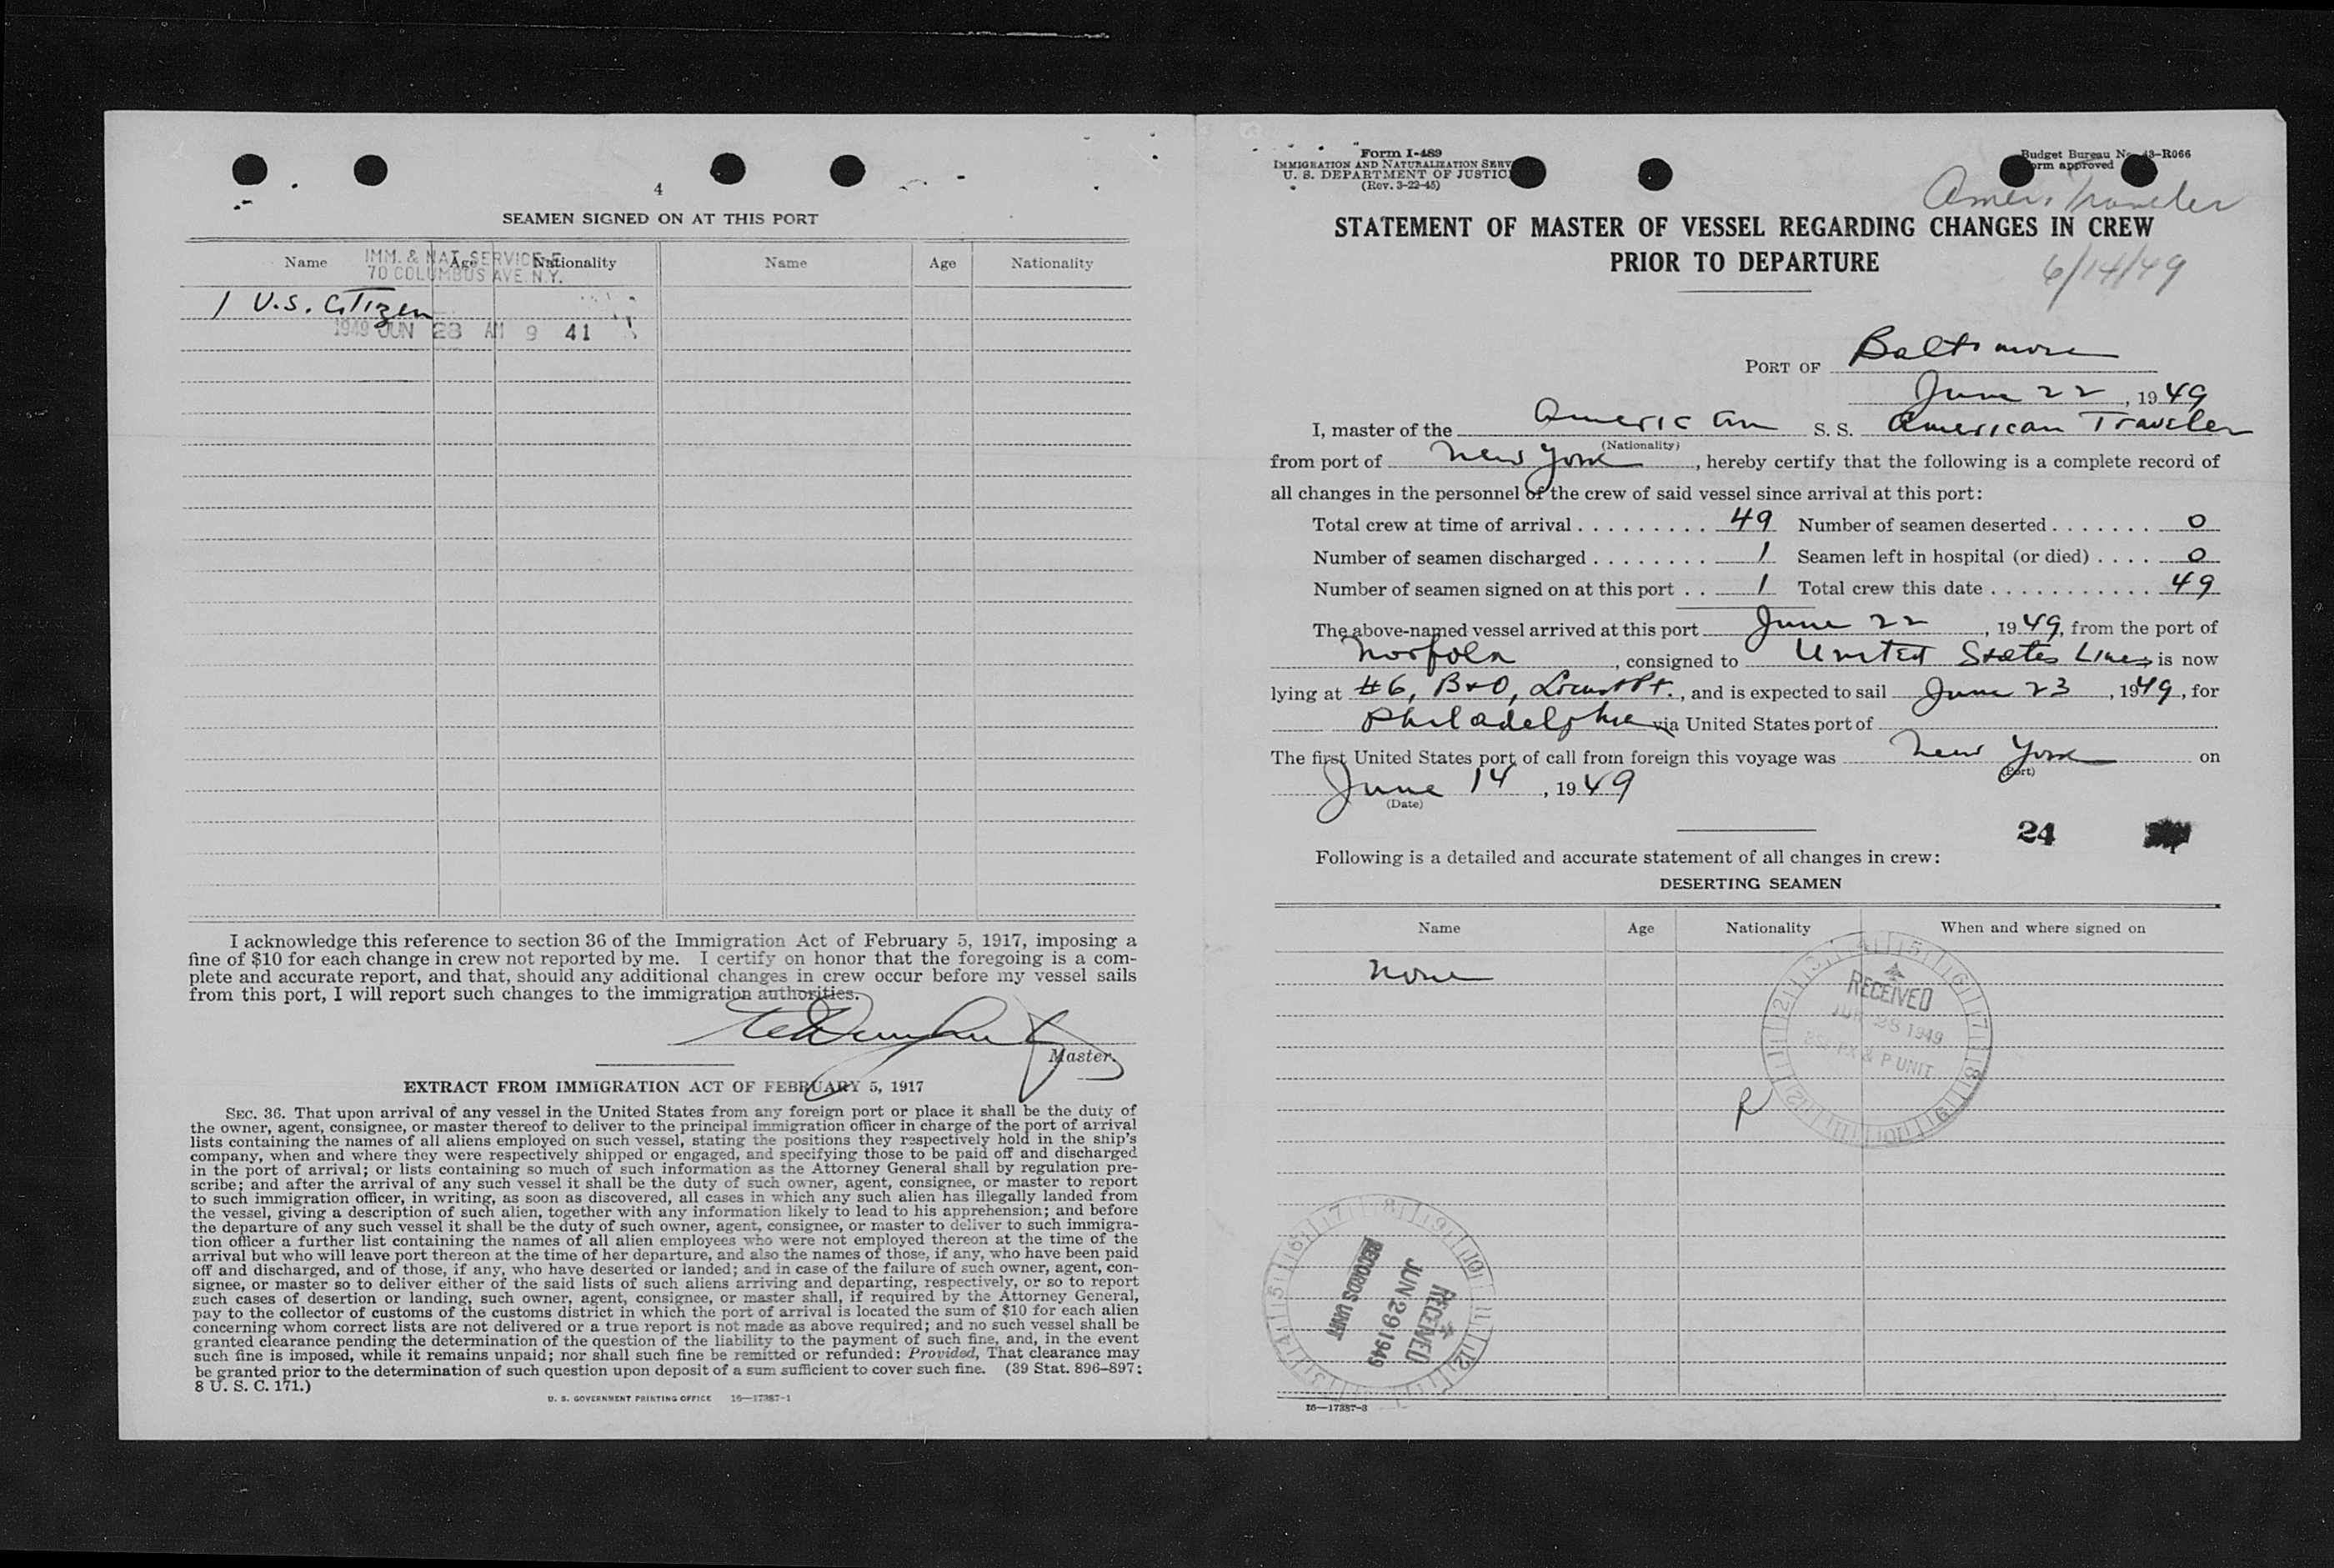 4
SEAMEN SIGNED ON AT THIS PORT
Name Age Nationality Name Age Nationality
IMM. & NAT. SERVICE
70 COLUMBUS AVE. N.Y.
1 U.S. Citizen
1949 JUN 28 AM 9 41
I acknowledge this reference to section 36 of the Immigration Act of February 5, 1917, imposing a
fine of $10 for each change in crew not reported by me. I certify on honor that the foregoing is a com-
plete and accurate report, and that, should any additional changes in crew occur before my vessel sails
from this port, I will report such changes to the immigration authorities.
Master.
EXTRACT FROM IMMIGRATION ACT OF FEBRUARY 5, 1917
SEC. 36. That upon arrival of any vessel in the United States from any foreign port or place it shall be the duty of
the owner, agent, consignee, or master thereof to deliver to the principal immigration officer in charge of the port of arrival
lists containing the names of all aliens employed on such vessel, stating the positions they respectively hold in the ship's
company, when and where they were respectively shipped or engaged, and specifying those to be paid off and discharged
in the port of arrival; or lists containing so much of such information as the Attorney General shall by regulation pre-
scribe; and after the arrival of any such vessel it shall be the duty of such owner, agent, consignee, or master to report
to such immigration officer, in writing, as soon as discovered, all cases in which any such alien has illegally landed from
the vessel, giving a description of such alien, together with any information likely to lead to his apprehension; and before
the departure of any such vessel it shall be the duty of such owner, agent, consignee, or master to deliver to such immigra-
tion officer a further list containing the names of all alien employees who were not employed thereon at the time of the
arrival but who will leave port thereon at the time of her departure, and also the names of those, if any, who have been paid
off and discharged, and of those, if any, who have deserted or landed; and in case of the failure of such owner, agent, con-
signee, or master so to deliver either of the said lists of such aliens arriving and departing, respectively, or so to report
such cases of desertion or landing, such owner, agent, consignee, or master shall, if required by the Attorney General,
pay to the collector of customs of the customs district in which the port of arrival is located the sum of $10 for each alien
concerning whom correct lists are not delivered or a true report is not made as above required; and no such vessel shall be
granted clearance pending the determination of the question of the liability to the payment of such fine, and, in the event
such fine is imposed, while it remains unpaid; nor shall such fine be remitted or refunded: Provided, That clearance may
be granted prior to the determination of such question upon deposit of a sum sufficient to cover such fine. (39 Stat. 896-897;
8 U. S. C. 171.)
U. S. GOVERNMENT PRINTING OFFICE 16—17387-1
Form I-489
IMMIGRATION AND NATURALIZATION SERV
U. S. DEPARTMENT OF JUSTIC
(Rev. 3-22-45)
Budget Bureau No. 43-R066
orm approved
Amer. Traveler
6/14/49
STATEMENT OF MASTER OF VESSEL REGARDING CHANGES IN CREW
PRIOR TO DEPARTURE
PORT OF Baltimore
June 22, 1949
I, master of the American S. S. American Traveler
(Nationality)
from port of New York, hereby certify that the following is a complete record of
all changes in the personnel of the crew of said vessel since arrival at this port:
Total crew at time of arrival . . . . . . . . . 49 Number of seamen deserted . . . . . . . 0
Number of seamen discharged . . . . . . . . 1 Seamen left in hospital (or died) . . . . 0
Number of seamen signed on at this port . . 1 Total crew this date . . . . . . . . . . . 49
The above-named vessel arrived at this port June 22, 1949, from the port of
Norfolk, consigned to United States Lines is now
lying at #6, B&O, Locust Pt., and is expected to sail June 23, 1949, for
Philadelphia via United States port of
The first United States port of call from foreign this voyage was New York on
(Port)
June 14, 1949
(Date)
24
Following is a detailed and accurate statement of all changes in crew:
DESERTING SEAMEN
Name Age Nationality When and where signed on
None
RECEIVED
JUN 25 1949
PX & P UNIT
R
RECEIVED
JUN 29 1949
RECORDS UNIT
16—17387-3